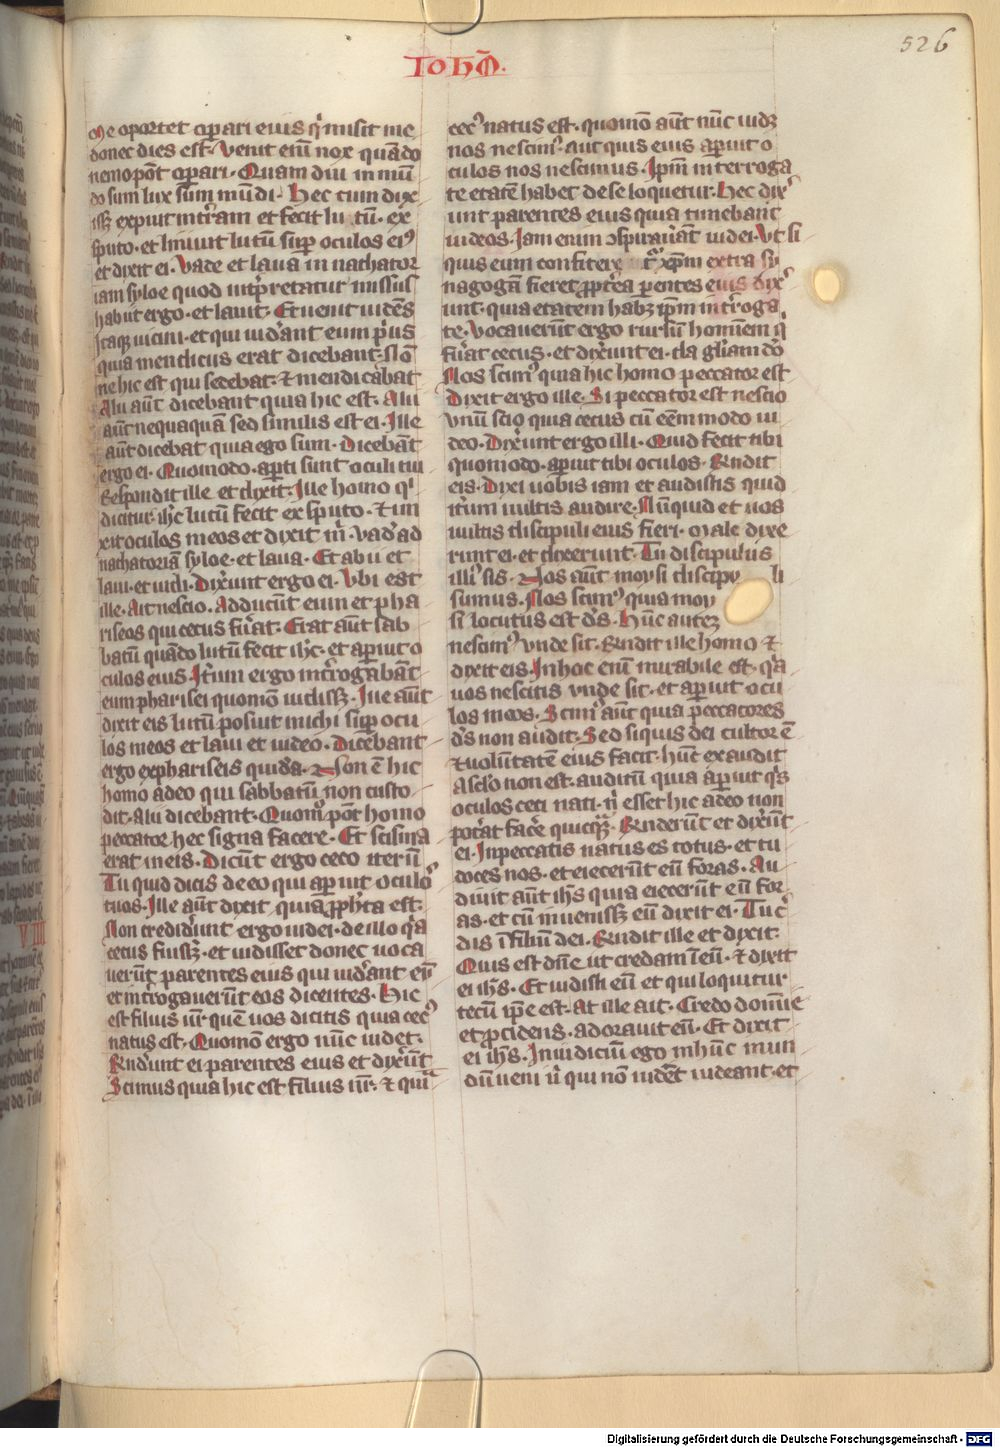 526
Ioħo.
Me oportet op̄ari eius q̇ misit me
donec dies est. Venit eiu̅ nox quādo
nemo pōt op̄ari. Quam diu in mu̅
do sum lux sum mu̅di. Hec cum dixi
issꝫ expuit in tr̄am et fecit lutū. ex
sputo. et liniuit lutū sup̄ oculos eiꝰ
et dixit ei. Vade et laua in nathator
iam syloe quod int̄pretatur missus
habiit ergo. et lauit. Et uenit uidēs
Itaqꝫ uicini. et qui uid̄ant eum p̄us
quia mendicus erat dicebant. Nō
ne hic est qui sedebat. et mendicabat
Alii aūt dicebant quia hic est. Alii
aūt nequaquā sed similis est ei. Ille
aūt dicebat quia ego sum. Dicebāt
ergo ei. Quomodo. ap̄ti sunt oculi tui
Respondit ille et dixit. Ille homo q̇
dicitur. ih̄c lutū fecit ex sputo. et un
xit oculos meos et dixit m̄. Vad̄ ad
nathatoriā syloe. et laua. Et abii et
laui. et uidi. Dix̄unt ergo ei. Vbi est
ille. Ait nescio. Adducūt eum et pha
riseos qui cecus fūat. Erat aūt sab
batū quādo lutū fecit ih̄c. et ap̄uit o
culos eius. It̄um ergo int̄rogabāt
eum pharisei quomō uidissꝫ. Ille aūt
dixit eis lutū posuit michi sup̄ ocu
los meos et laui et uideo. Dicebant
ergo ex phariseis quidā. Non ē hic
homo a deo qui sabbatū non custo
dit. Alii dicebant. Quomō pōt homo
peccator hec signa facere. Et scisma
erat in eis. Dicūt ergo ceco iterū
Tu quid dicis de eo qui ap̄uit oculo̅
tuos. Ille aūt dixit quia ꝓph̄ta est.
Non credid̄unt ergo iudei. de illo q̄a
cecus fuissꝫ. et uidisset donec uoca
uerūt parentes eius qui uid̄ant eu̅
et int̄rogauerūt eos dicentes. Hic
est filius ur̄ quē uos dicitis quia cecꝰ
natus est. Quomō ergo nūc uidet.
Rnd̄unt ei parentes eius et dix̄ūt
Scimus quia hic est filius ur̄. et quia
cecꝰ natus est. quomō aūt nūc uidꝫ
nos nescimꝰ. aut quis eius ap̄uit o
culos nos nescimus. Ipm̄ interroga
te etatē habet de se loquetur. Hec dix̄
unt parentes eius quia timebant
iudeos. Iam enim ↄspirau̅ant iudei. Vt si
quis eum confitere tur̄ xp̄m extra sy
nagogā fieret. ꝓpt̄ea parentes eius dix̄
unt. quia etatem habꝫ ip̄m int̄roga
te. Vocauerūt ergo rursū hominem q̇
fūat cecus. et dix̄unt ei. da gl̄iam dō
Nos scimꝰ quia hic homo peccator est
Dixit ergo ille. Si peccator est nescio
vnū scio quia cecus cū eēm modo ui
deo. Dix̄unt ergo illi. Quid fecit tibi
quomodo. ap̄uit tibi oculos. Rndit
eis. Dixi uobis iam et audistis quid
it̄um uultis audire. Nūquid et uos
uultis discipuli eius fieri. Male dixe
runt ei. et dixerunt. Tu discipulus
illiꝰ sis. Nos aūt moysi discipu li
sumus. Nos scimꝰ quia moy
si locutus est dꝰs. Hūc auteꝫ
nescimꝰ vnde sit. Rndit ille homo et
dixit eis. In hoc enī mirabile est. q̄a
uos nescitis vnde sit. et ap̄uit ocu
los meos. Scimꝰ aūt quia peccatores
dꝰs non audit. Sed siquis dei cultor ē
et uolūtatē eius facit. hūc exaudit
A sclo̅ non est. auditū quia ap̄uit q̇s
oculos ceci nati. n̄ esset hic a deo non
pot̄at fac̄e quicq̄ꝫ. Rnderūt et dix̄ūt
ei. In peccatis natus es totus. et tu
doces nos. et eiecerūt eū foras. Au
diuit aūt ih̄s quia eiecerūt eū for
as. et cū inuenissꝫ eū dixit ei. Tu c̄
dis ī filiū dei. Rndit ille et dixit.
Quis est dn̄e ut credam ī eū. et dixit
ei ih̄s. Et uidisti eū et qui loquitur
tecū ip̄e est. At ille ait. Credo domine
et ꝓcidens. adorauit eū. Et dixit
ei ih̄s. In iudiciū ego in hūc mun
dū ueni ut qui nō uidēt uideant. et
Digitalisierung gefördert durch die Deutsche Forschungsgemeinschaft - DFG